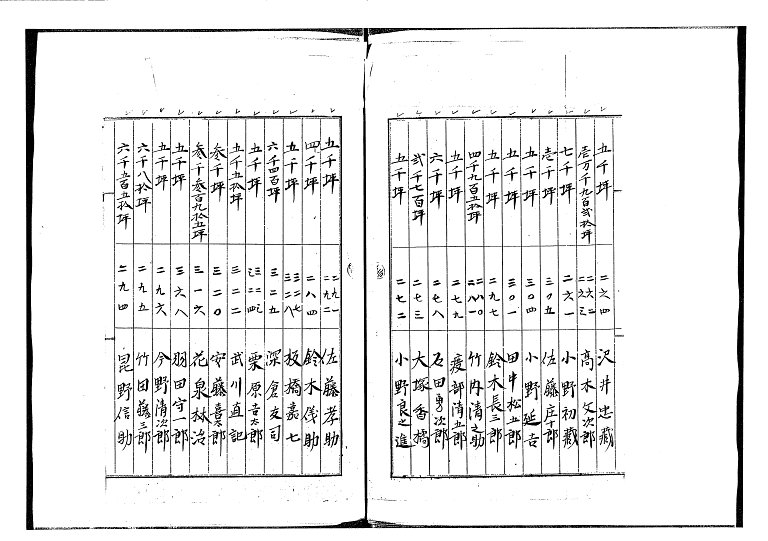 五千坪 二六四 沢井忠蔵
壱万千九百弐拾坪 二六二 二六三 高木文次郎
七千坪 二六一 小野初蔵
壱千坪 三〇五 佐藤庄十郎
五千坪 三〇四 小野延吉
五千坪 三〇一 田中松五郎
五千坪 二九七 鈴木長三郎
四千九百五拾坪 二八〇 二八一 竹内清之助
五千坪 二七九 清五郎
六千坪 二七八 石田勇次郎
弐千七百坪 二七三 大塚香橘
五千坪 二七二 小野良之進
五千坪 二九一 二九二 佐藤孝助
四千坪 二八四 鈴木儀助
五千坪 三二七 三二八 板橋嘉七
六千四百坪 三二五 深倉友司
五千坪 三二三 三二四 栗原吉太郎
五千五拾坪 三二二 武川直記
参千坪 三二〇 安藤喜太郎
参千参百九拾五坪 三一六 花泉林治
五千坪 三六八 羽田守一郎
五千坪 二九六 今野清次郎
六千八拾坪 二九五 竹田藤三郎
六千五百五拾坪 二九四 昆野信助